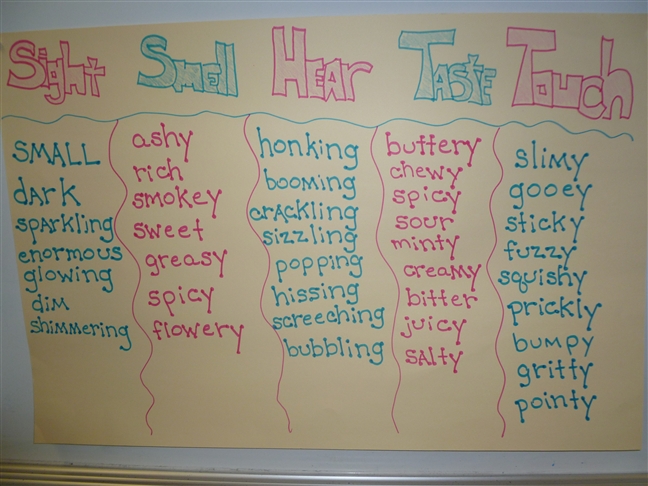 Sight Smell Hear Taste Touch
SMALL
dark
sparkling
enormous
glowing
dim
shimmering
ashy
rich
smokey
sweet
greasy
spicy
flowery
honking
booming
crackling
sizzling
popping
hissing
screeching
bubbling
buttery
chewy
spicy
sour
minty
creamy
bitter
juicy
salty
slimy
gooey
sticky
fuzzy
squishy
prickly
bumpy
gritty
pointy